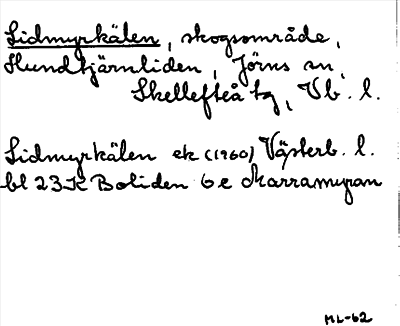 Lidmyrkälen, skogsområde,
Hundtjärnliden, Jörns sn,
Skellefteå tg, Vb. l.
Lidmyrkälen ek (1960) Västerb. l.
bl 23K Boliden 6e Marramyran
ML-62